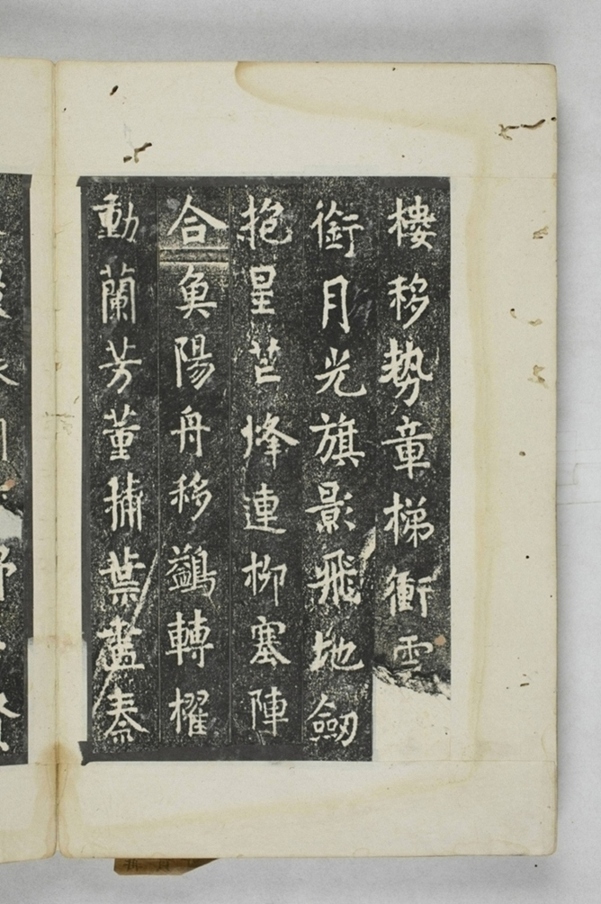 樓移勢章梯衝雲
銜月光旗影飛地劔
抱星芒烽連柳塞陣
合魚陽舟移鷁轉櫂
動蘭芳董葉盡